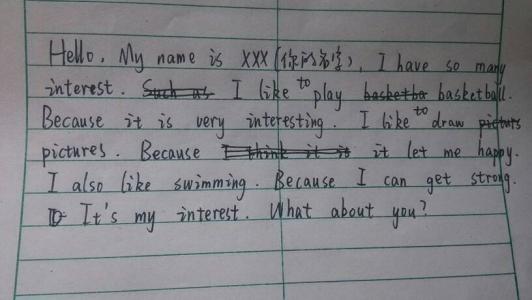 Hello, My name is XXX (你的名字), I have so many
interest. Such as I like to play basketba basketball.
Because it is very interesting. I like to draw picturs
pictures. Because I think it is it let me happy.
I also like swimming. Because I can get strong.
It's my interest. What about you?